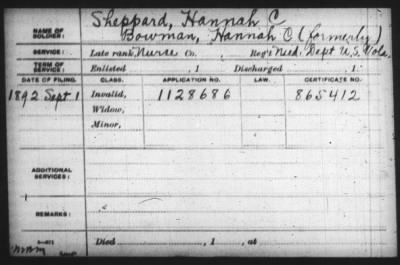 Sheppard, Hannah C
NAME OF SOLDIER: Bowman, Hannah C (formerly)
SERVICE: Late rank, Nurse Co. Reg't Med. Dept U.S. Vols.
TERM OF SERVICE: Enlisted , 1 Discharged , 1
DATE OF FILING. CLASS. APPLICATION NO. LAW. CERTIFICATE NO.
1892 Sept 1 Invalid, 1128686 865412
Widow,
Minor,
ADDITIONAL SERVICES:
REMARKS:
Died , 1 , at